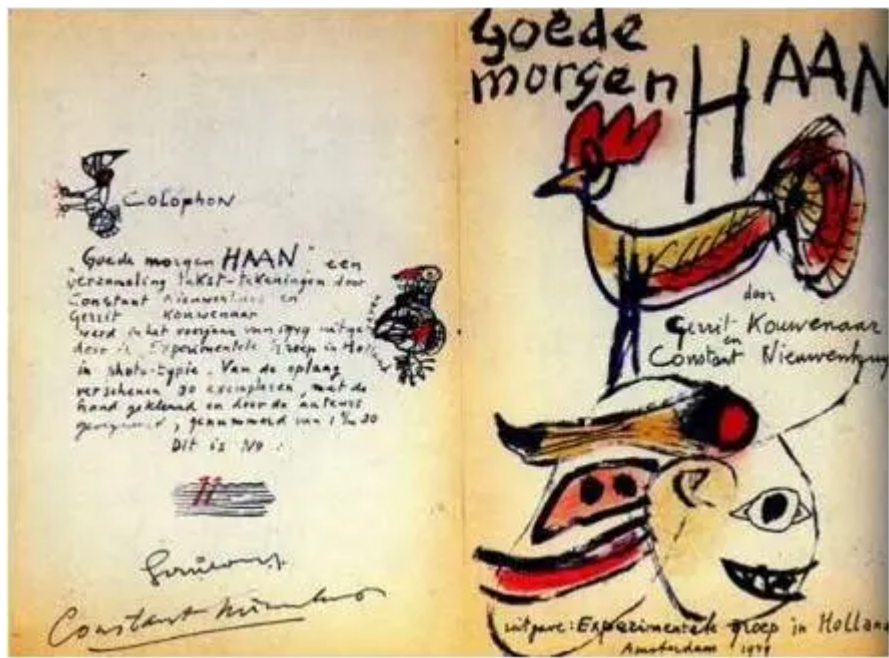 Colophon
"Goede morgen HAAN" een
verzameling tekst-tekeningen door
Constant Nieuwenhuis en
Gerrit Kouwenaar
werd in het voorjaar van 1949 uitge
door de Experimentele Groep in Holland
in photo-typie. Van de oplaag
verschenen 30 exemplaren, met de
hand gekleurd en door de auteurs
gesigneerd, genummerd van 1 30
Dit is No :
Constant
Goede
morgen HAAN
door
Gerrit Kouwenaar
en
Constant Nieuwenhuy
uitgave: Experimentele groep in Holland
Amsterdam 1949